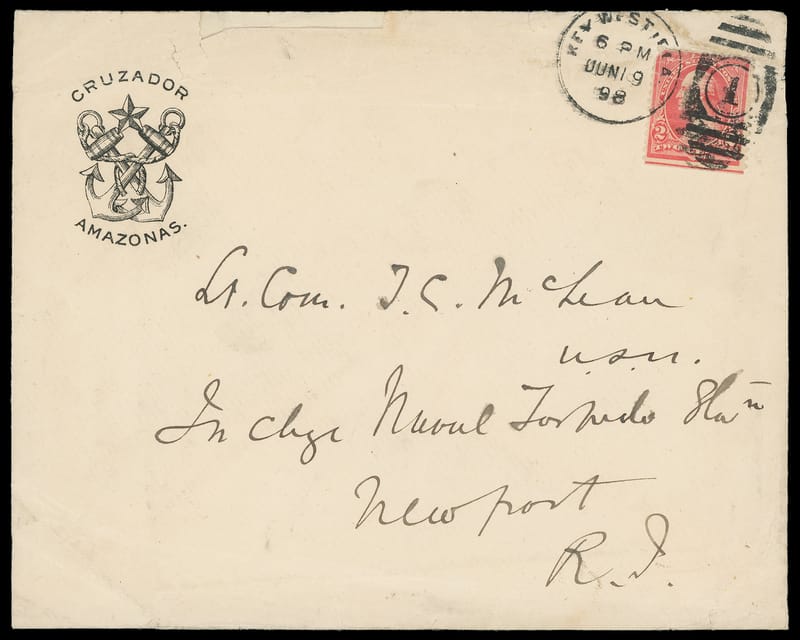 CRUZADOR
AMAZONAS.
KEY WEST FLA
6 PM
JUN 19
98
1
2
Lt. Com. T. C. McLean
U.S.N.
In chge Naval Torpedo Stan
Newport
R. I.